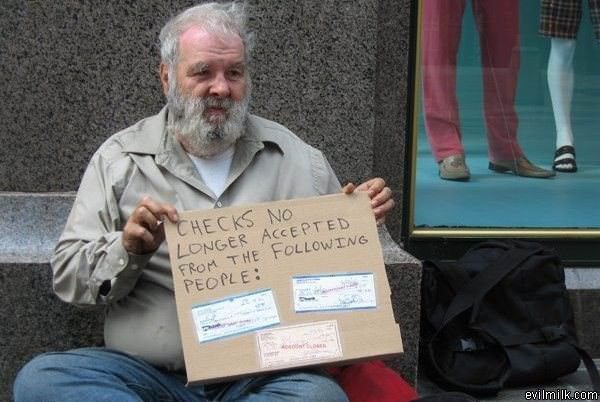 CHECKS NO
LONGER ACCEPTED
FROM THE FOLLOWING
PEOPLE:
ACCOUNT CLOSED
evilmilk.com